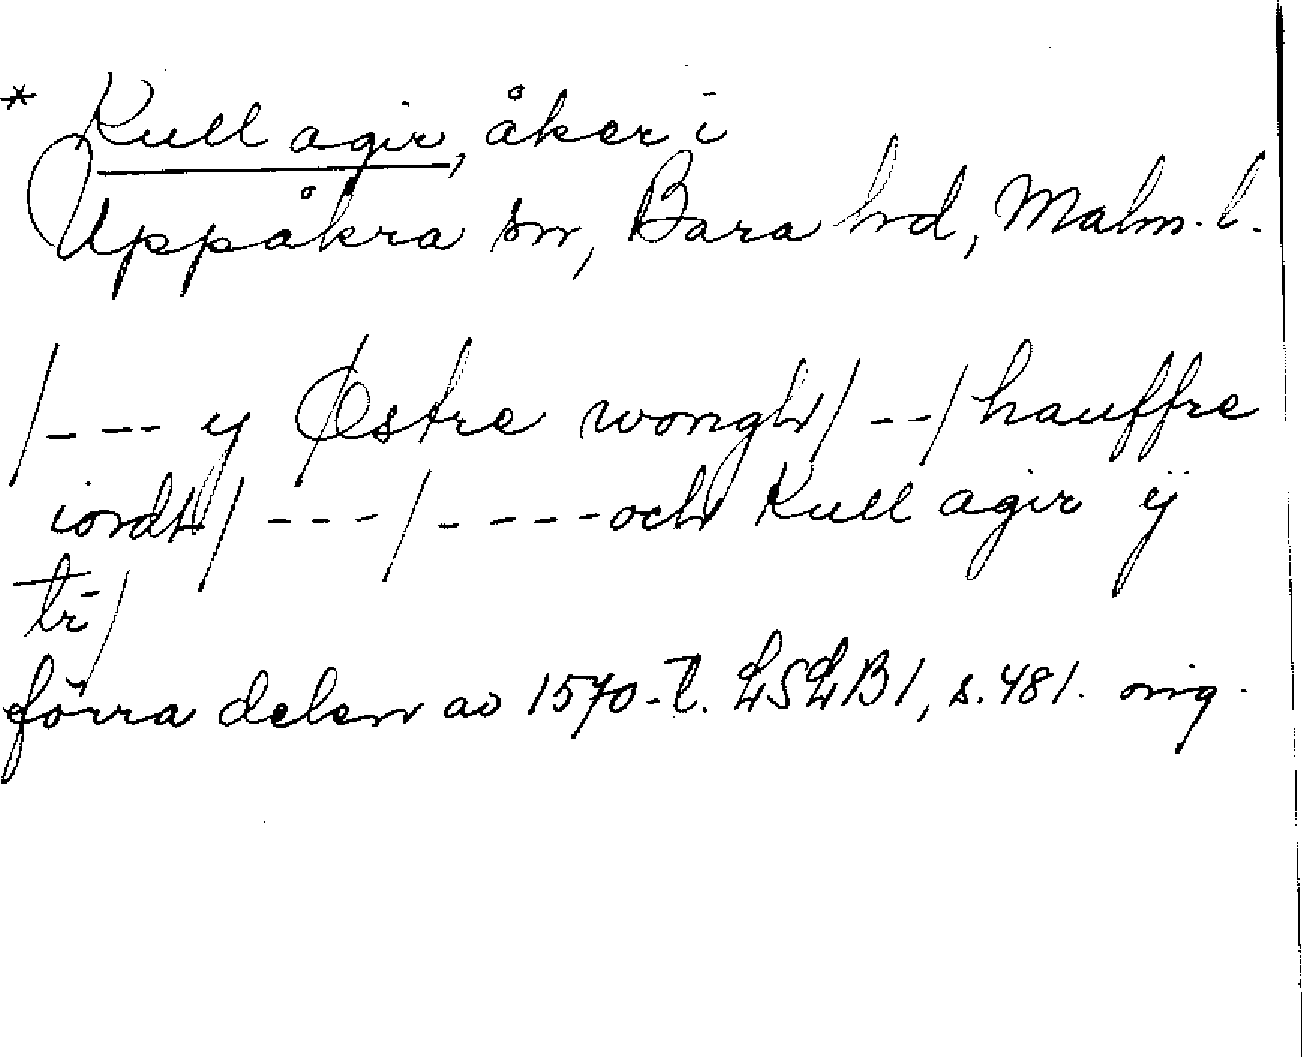 * Kull agir, åker i
Uppåkra sn, Bara hd, Malm. l.
/--- y Østre wongh/--/hauffre
iordh/---/----och Kull agir ÿ
tr/
förra delen av 1570-t. LSLB1, s. 481. orig.